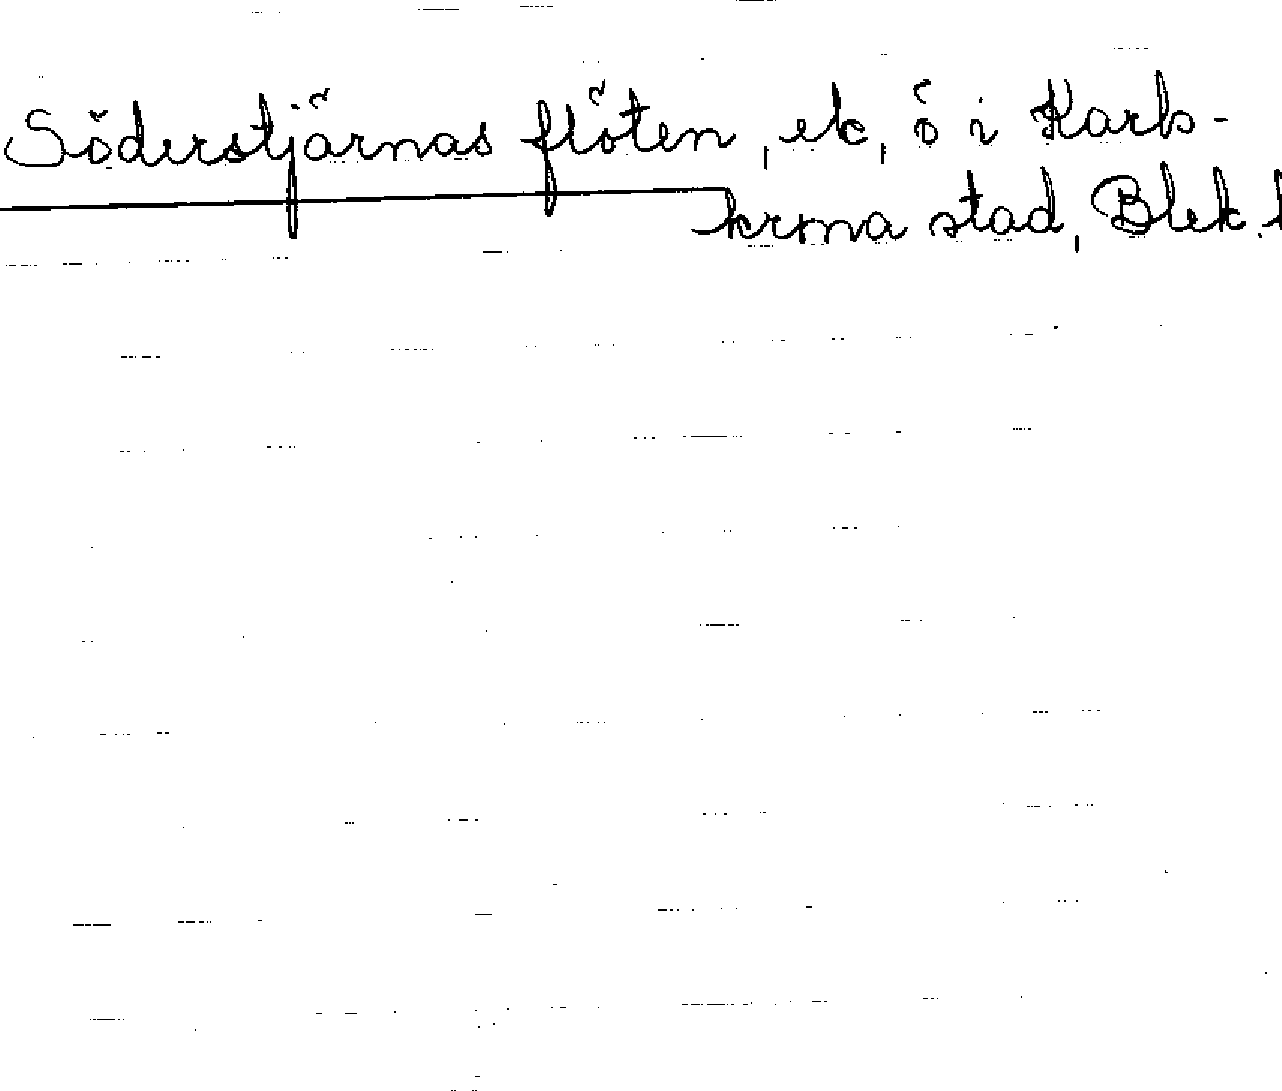 Söderstjärnas flöten, ek, ö i Karls-
krona stad, Blek.